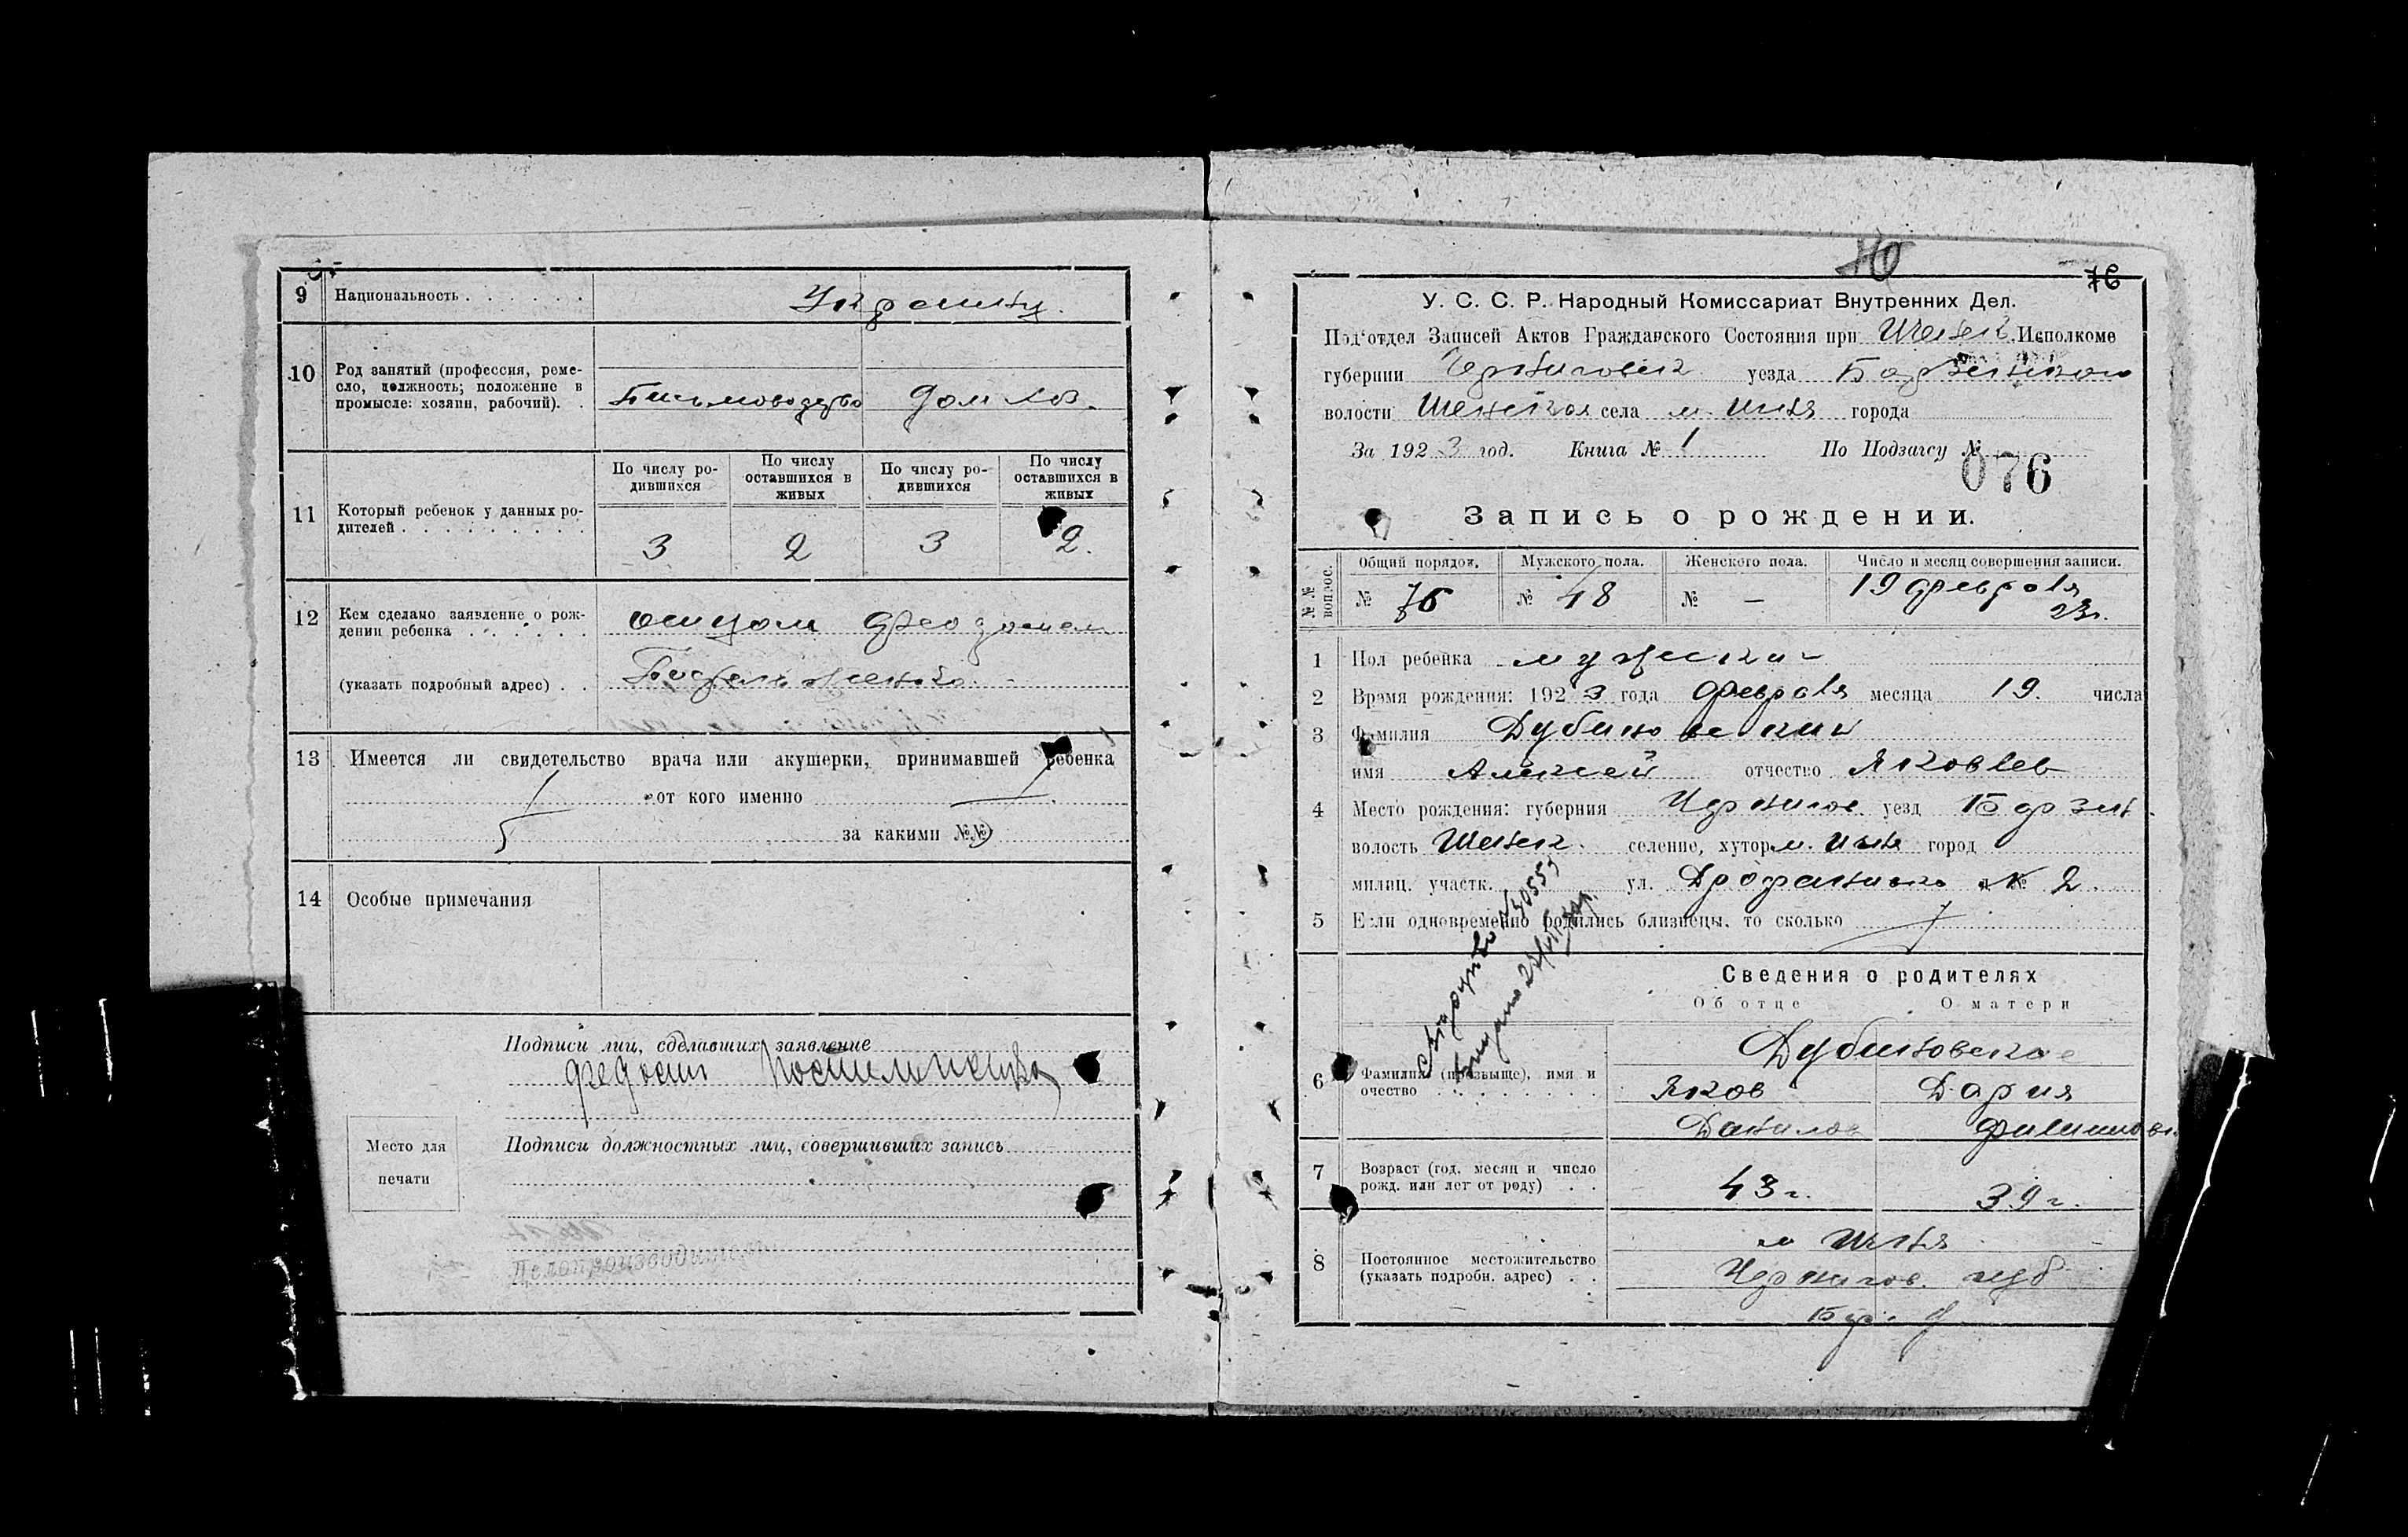 9 Национальность . . . . . . Украинц.
10 Род занятий (профессия, реме-
сло, должность; положение в
промысле: хозяин, рабочий). .
Письмоводство дом хоз.
11 Который ребенок у данных ро-
дителей . . . . . . . . .
По числу ро-
дившихся
По числу
оставшихся в
живых
По числу ро-
дившихся
По числу
оставшихся в
живых
3 2 3 2.
12 Кем сделано заявление о рож-
дении ребенка . . . . . .
(указать подробный адрес) . .
13 Имеется ли свидетельство врача или акушерки, принимавшей ребенка
от кого именно
за какими №№
14 Особые примечания
Подписи лиц, сделавших заявление
Место для
печати
Подписи должностных лиц, совершивших запись
Делопроизводитель
70
76
У. С. С. Р. Народный Комиссариат Внутренних Дел.
Под‘отдел Записей Актов Гражданского Состояния при Исполкоме
губернии Черниговск уезда
волости села м. города
За 1923 год. Книга № 1 По Подзагсу №
076
Запись о рождении.
№ № вопрос.
Общий порядок. Мужского пола. Женского пола. Число и месяц совершения записи.
№ 76 № 48 № — 19 февраля
23г.
1 Пол ребенка мужской
2 Время рождения: 1923 года февраля месяца 19. числа
3 Фамилия Дубиновский
имя Алексей отчество Яковлев
4 Место рождения: губерния Чернигов уезд Борзн.
волость селение, хутор м. город
милиц. участк. ул. д № 2.
5 Если одновременно родились близнецы, то сколько
Сведения о родителях
Об отце О матери
6 Фамилия (прозвище), имя и
очество . . . . . . . .
Дубиновские
Яков Дария
Данилов Филиппов
7 Возраст (год, месяц и число
рожд. или лет от роду) . .
43 г. 39 г.
8 Постоянное местожительство
(указать подробн. адрес) . .
Чернигов. губ